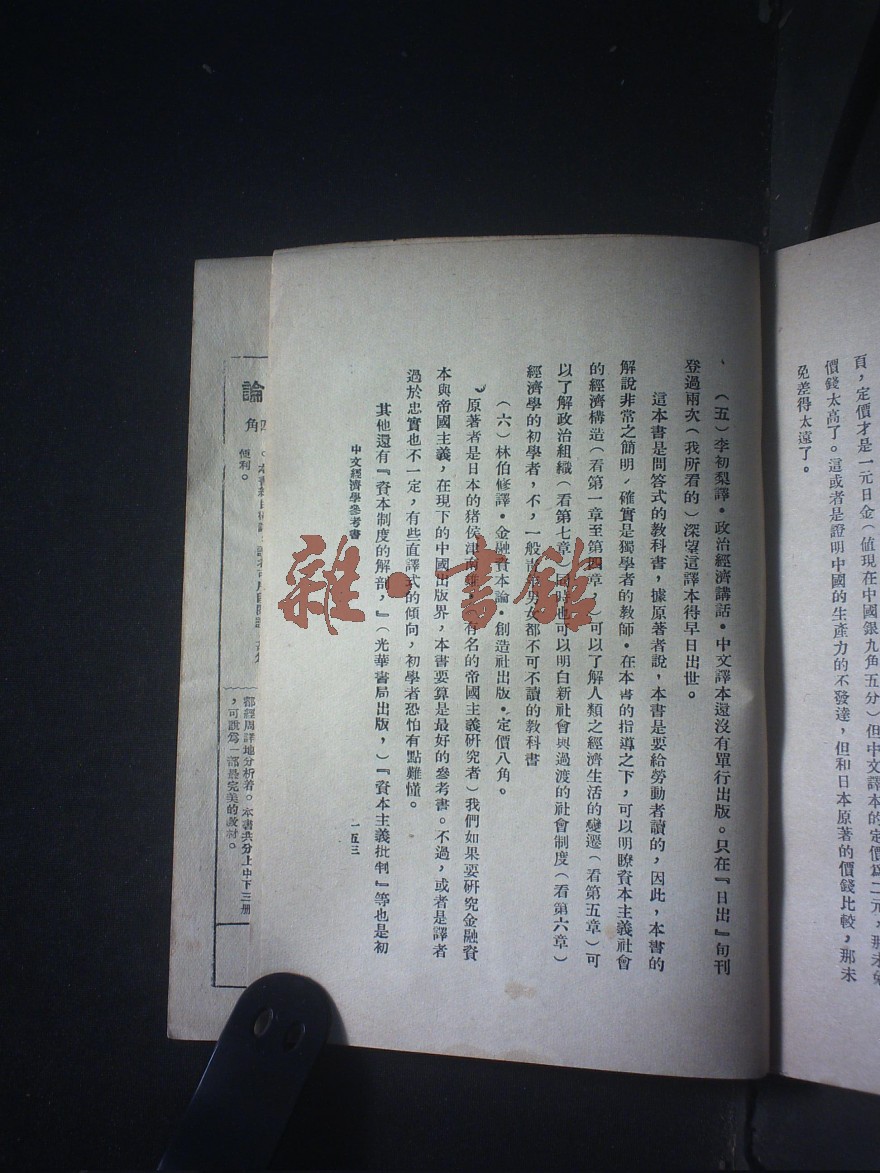 頁，定價才是一元日金（値現在中國銀九角五分）但中文譯本的定價爲二元，那末
價錢太高了。這或者是證明中國的生產力的不發達，但和日本原著的價錢比較，那未
免差得太遠了。
（五）李初梨譯・政治經濟講話・中文譯本還沒有單行出版。只在『日出』旬刊
登過兩次（我所看的）深望這譯本得早日出世。
這本書是問答式的教科書，據原著者說，本書是要給勞動者讀的，因此，本書的
解說非常之簡明，確實是獨學者的教師・在本書的指導之下，可以明瞭資本主義社會
的經濟構造（看第一章至第四章，）可以了解人類之經濟生活的變遷（看第五章）可
以了解政治組織（看第七章）同時也可以明白新社會與過渡的社會制度（看第六章）
經濟學的初學者，不，一般男女都不可不讀的教科書
（六）林伯修譯・金融資本論・創造社出版・定價八角。
原著者是日本的猪侯津南雄，有名的帝國主義研究者）我們如果要研究金融資
本與帝國主義，在現下的中國出版界，本書要算是最好的參考書。不過，或者是譯者
過於忠實也不一定，有些直譯式的傾向，初學者恐怕有點難懂。
其他還有『資本制度的解剖，』（光華書局出版，）『資本主義批判』等也是初
中文經濟學參考書
一五三
雜・書館
論
角
便利。
都經周詳地分析着。本書共分上中下三册
，可說爲一部最完美的教材。